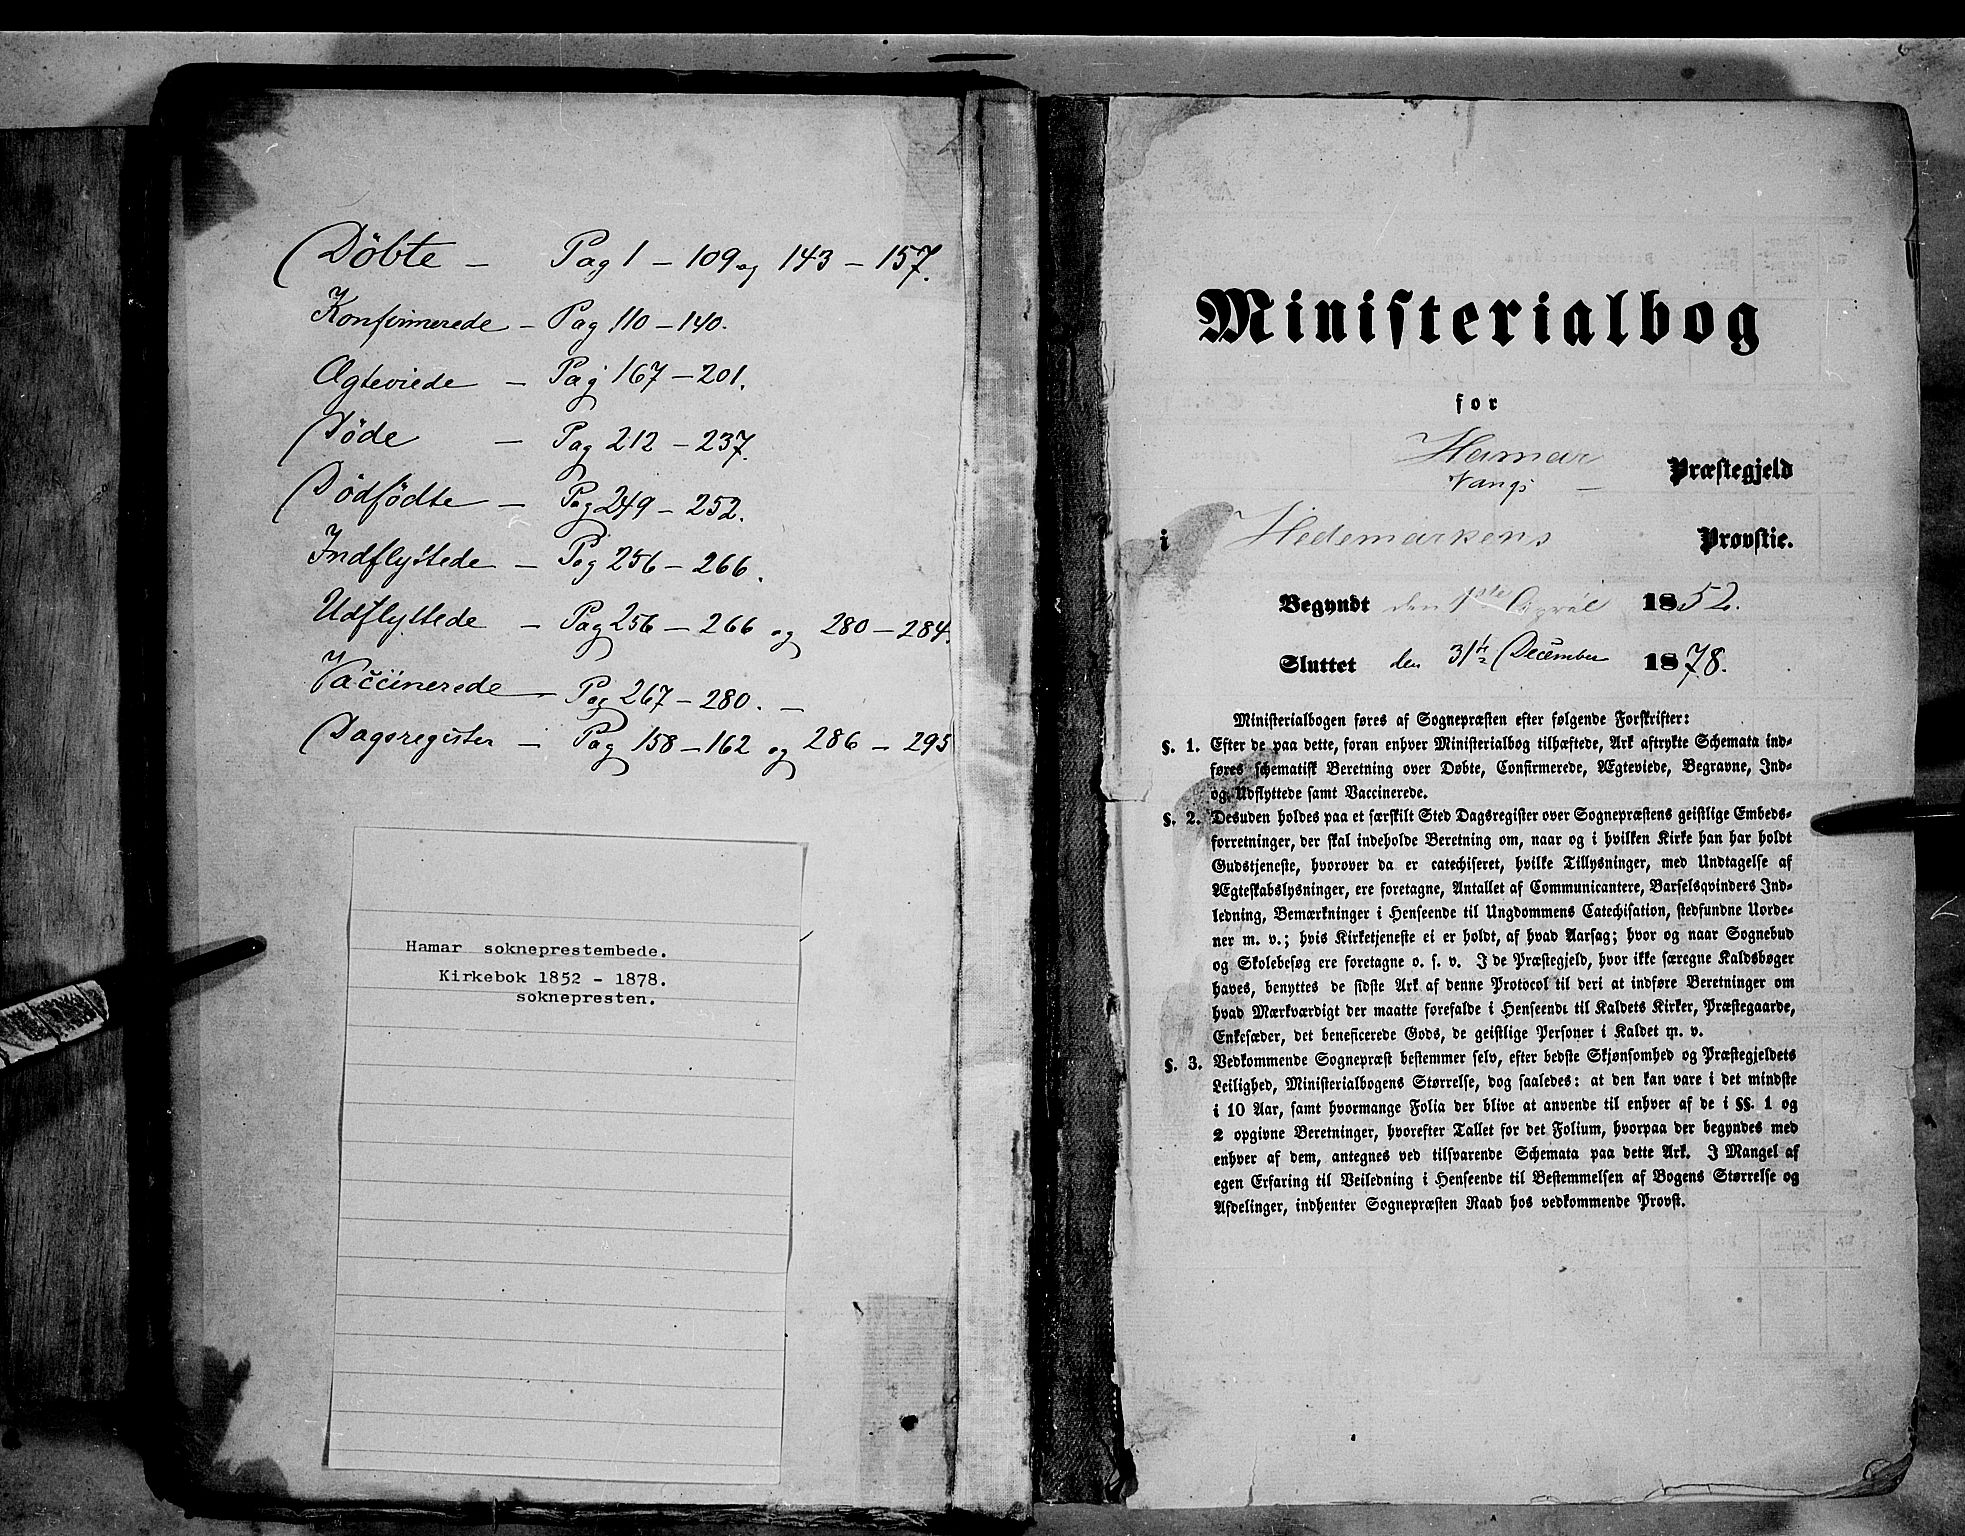 Döbte - Pag 1 - 109 og 143 - 157.
Konfirmerede - Pag 110 - 140.
Ægteviede - Pag 167 - 201.
Døde - Pag 212 - 237.
Dödfödte - Pag 249 - 252.
Indflyttede - Pag 256 - 266.
Udflyttede - Pag 256 - 266 og 280 - 284.
Vaccinerede - Pag 267 - 280. -
Dagsregister - Pag 158 - 162 og 286 - 295
Hamar sokneprestembede.
Kirkebok 1852 - 1878.
soknepresten.
Ministerialbog
for
Hamar
Vangs - Præstegjeld
i Hedemarkens Provstie.
Begyndt den 1ste April 1852.
Sluttet den 31te December 1878.
Ministerialbogen føres af Sognepræsten efter følgende Forskrifter:
§. 1. Efter de paa dette, foran enhver Ministerialbog tilhæftede, Ark aftrykte Schemata ind-
føres schematisk Beretning over Døbte, Confirmerede, Ægteviede, Begravne, Ind-
og Udflyttede samt Vaccinerede.
§. 2. Desuden holdes paa et særskilt Sted Dagsregister over Sognepræstens geistlige Embeds-
forretninger, der skal indeholde Beretning om, naar og i hvilken Kirke han har holdt
Gudstjeneste, hvorover da er catechiseret, hvilke Tillysninger, med Undtagelse af
Ægteskabslysninger, ere foretagne, Antallet af Communicantere, Barselsqvinders Ind-
ledning, Bemærkninger i Henseende til Ungdommens Catechisation, stedfundne Uorde-
ner m. v.; hvis Kirketjeneste ei er holdt, af hvad Aarsag; hvor og naar Sognebud
og Skolebesøg ere foretagne o. s. v. I de Præstegjeld, hvor ikke særegne Kaldsbøger
haves, benyttes de sidste Ark af denne Protocol til deri at indføre Beretninger om
hvad Mærkværdigt der maatte forefalde i Henseende til Kaldets Kirker, Præstegaarde,
Enkesæder, det beneficerede Gods, de geistlige Personer i Kaldet m. v.
§. 3. Vedkommende Sognepræst bestemmer selv, efter bedste Skjønsomhed og Præstegjeldets
Leilighed, Ministerialbogens Størrelse, dog saaledes: at den kan vare i det mindste
i 10 Aar, samt hvormange Folia der blive at anvende til enhver af de i §§. 1 og
2 opgivne Beretninger, hvorefter Tallet for det Folium, hvorpaa der begyndes med
enhver af dem, antegnes ved tilsvarende Schemata paa dette Ark. I Mangel af
egen Erfaring til Veiledning i Henseende til Bestemmelsen af Bogens Størrelse og
Afdelinger, indhenter Sognepræsten Raad hos vedkommende Provst.